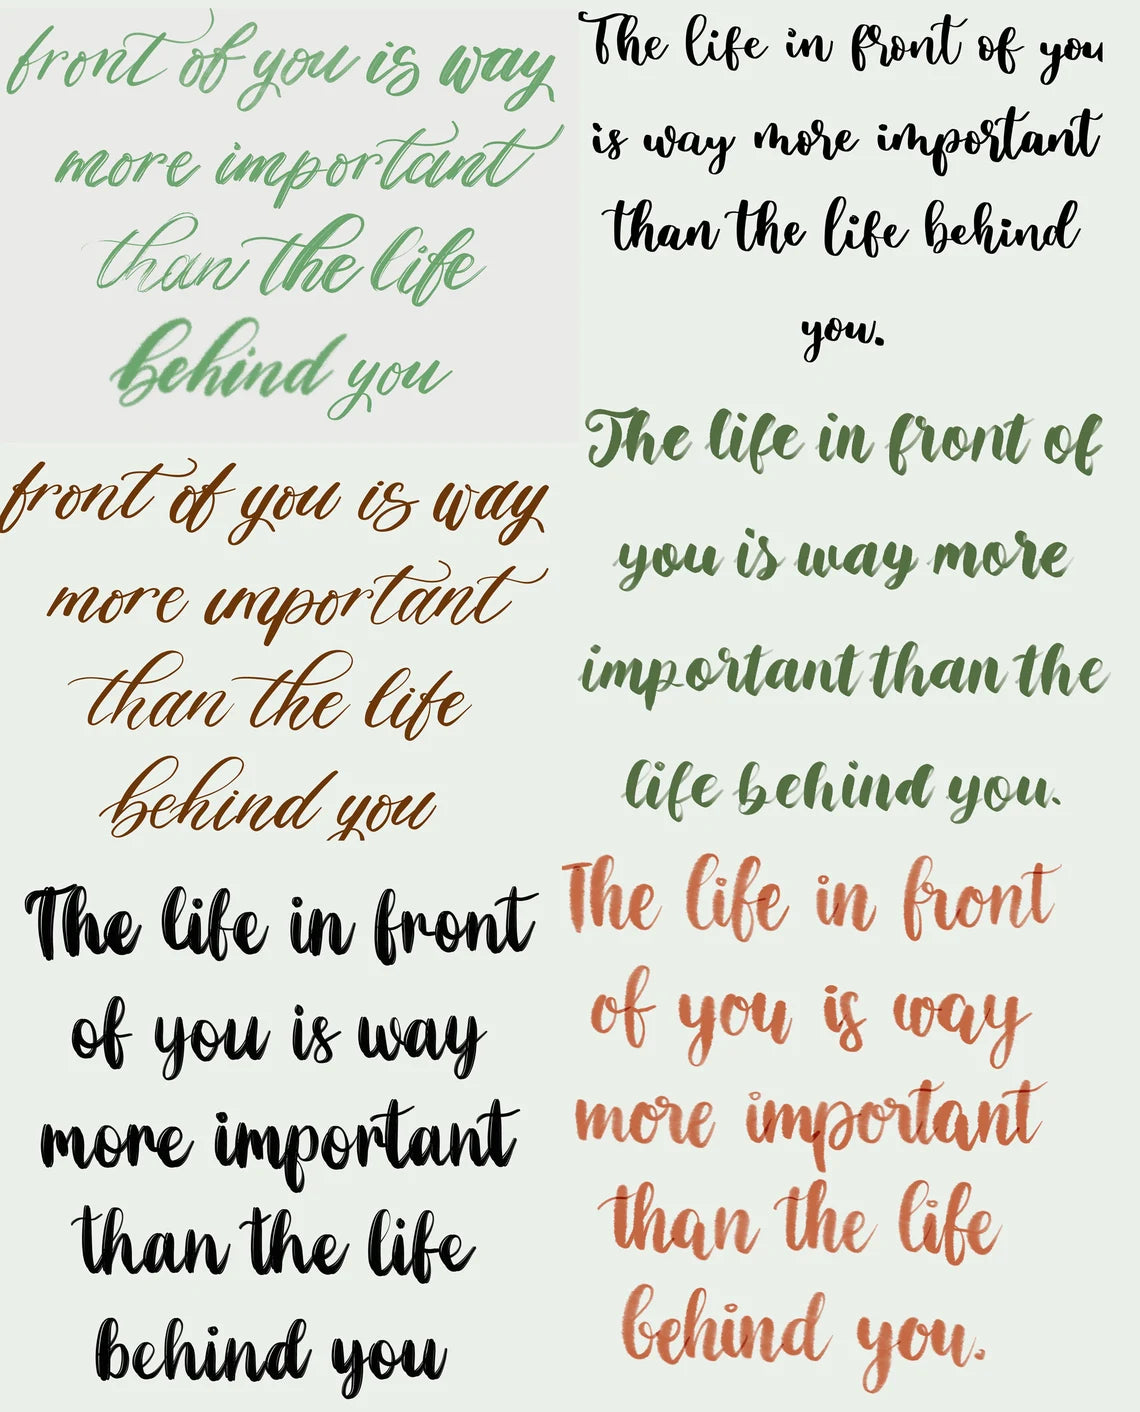 front of you is way
more important
than the life
behind you
The life in front of you
is way more important
than the life behind
you.
front of you is way
more important
than the life
behind you
The life in front of
you is way more
important than the
life behind you.
The life in front
of you is way
more important
than the life
behind you
The life in front
of you is way
more important
than the life
behind you.